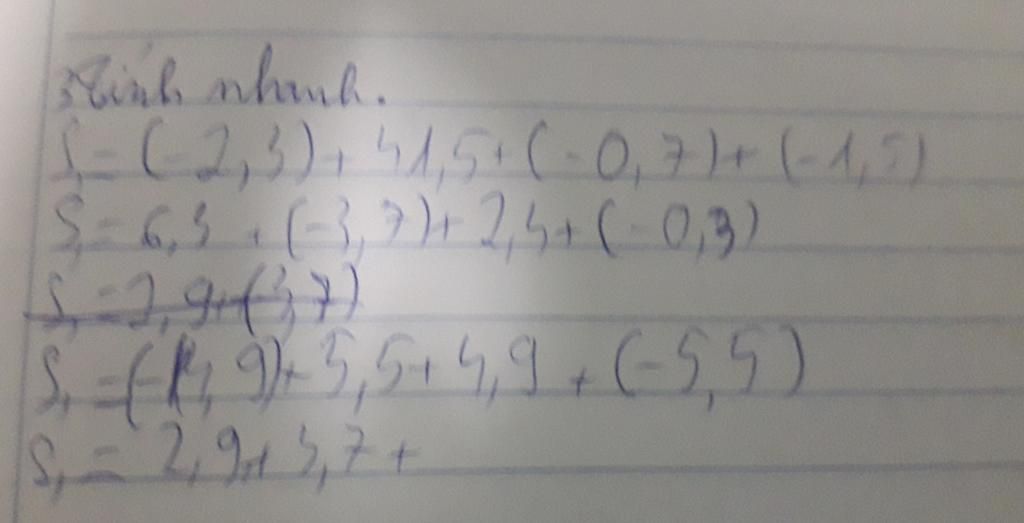 Tính nhanh.
S₁ = (-2,3) + 41,5 + (-0,7) + (-1,5)
S₁ = 6,3 + (-3,7) + 2,4 + (-0,3)
S₁ = 2,9 + (3,7)
S₁ = (-4,9) + 5,5 + 4,9 + (-5,5)
S₁ = 2,9 + 3,7 +